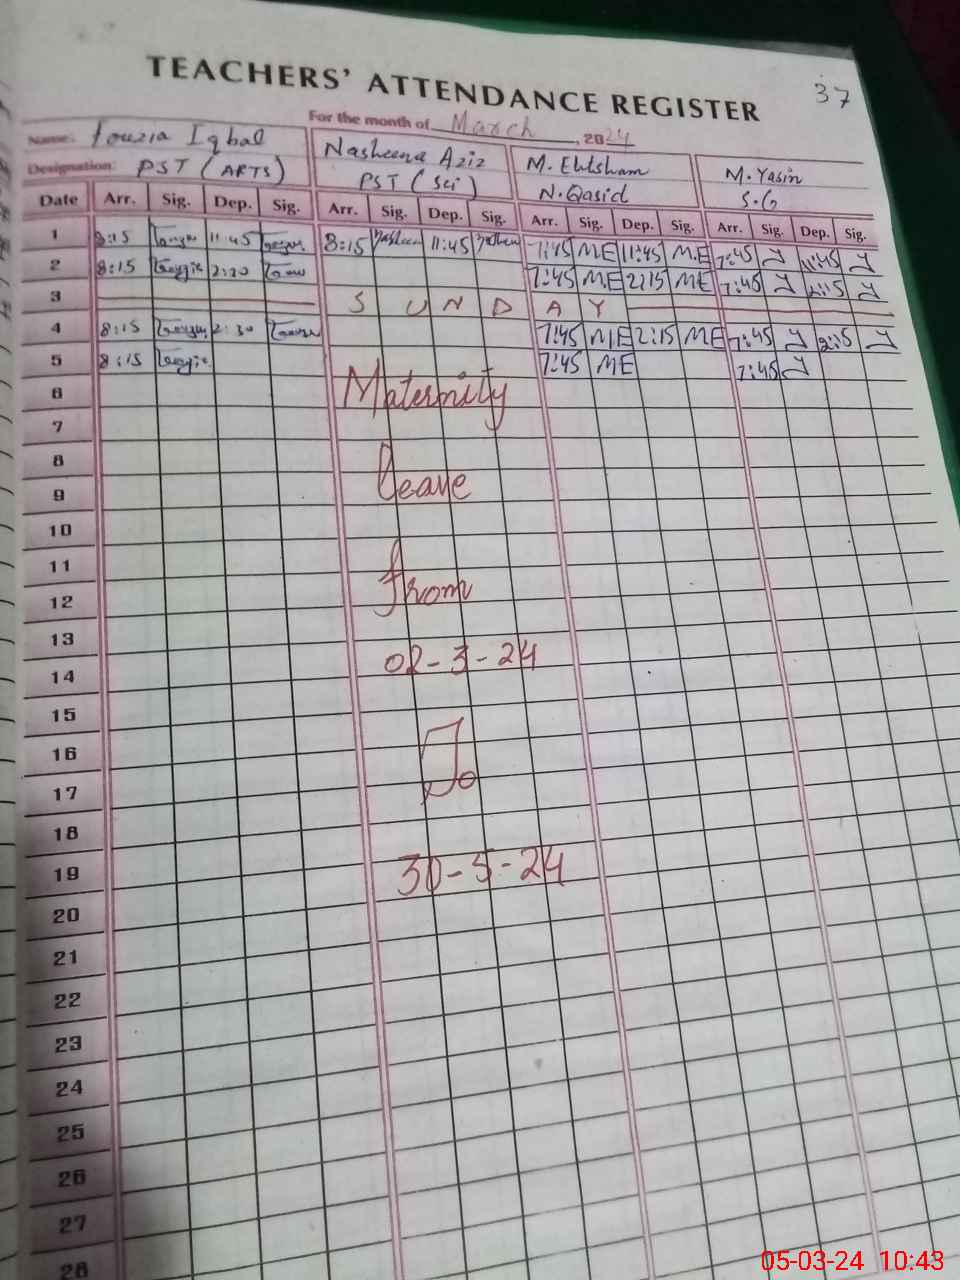 37
TEACHERS' ATTENDANCE REGISTER
For the month of March, 2024
Name: Fouzia Iqbal Nasheena Aziz M. Ehtsham M. Yasin
Designation: PST (ARTS) PST (Sci) N. Qasid S.G
Date Arr. Sig. Dep. Sig. Arr. Sig. Dep. Sig. Arr. Sig. Dep. Sig. Arr. Sig. Dep. Sig.
1 8:15 11:45 8:15 11:45 7:45 ME 11:45 M.E 7:45 11:45
2 8:15 2:30 7:45 M.E 2:15 ME 7:45 2:15
3 SUNDAY
4 8:15 2:30 7:45 ME 2:15 ME 7:45 2:15
5 8:15 7:45 ME 7:45
6 Maternity
7
8
9 leave
10
11
12 from
13
14 02-3-24
15
16
17 To
18
19 30-5-24
20
21
22
23
24
25
26
27
28
05-03-24 10:43